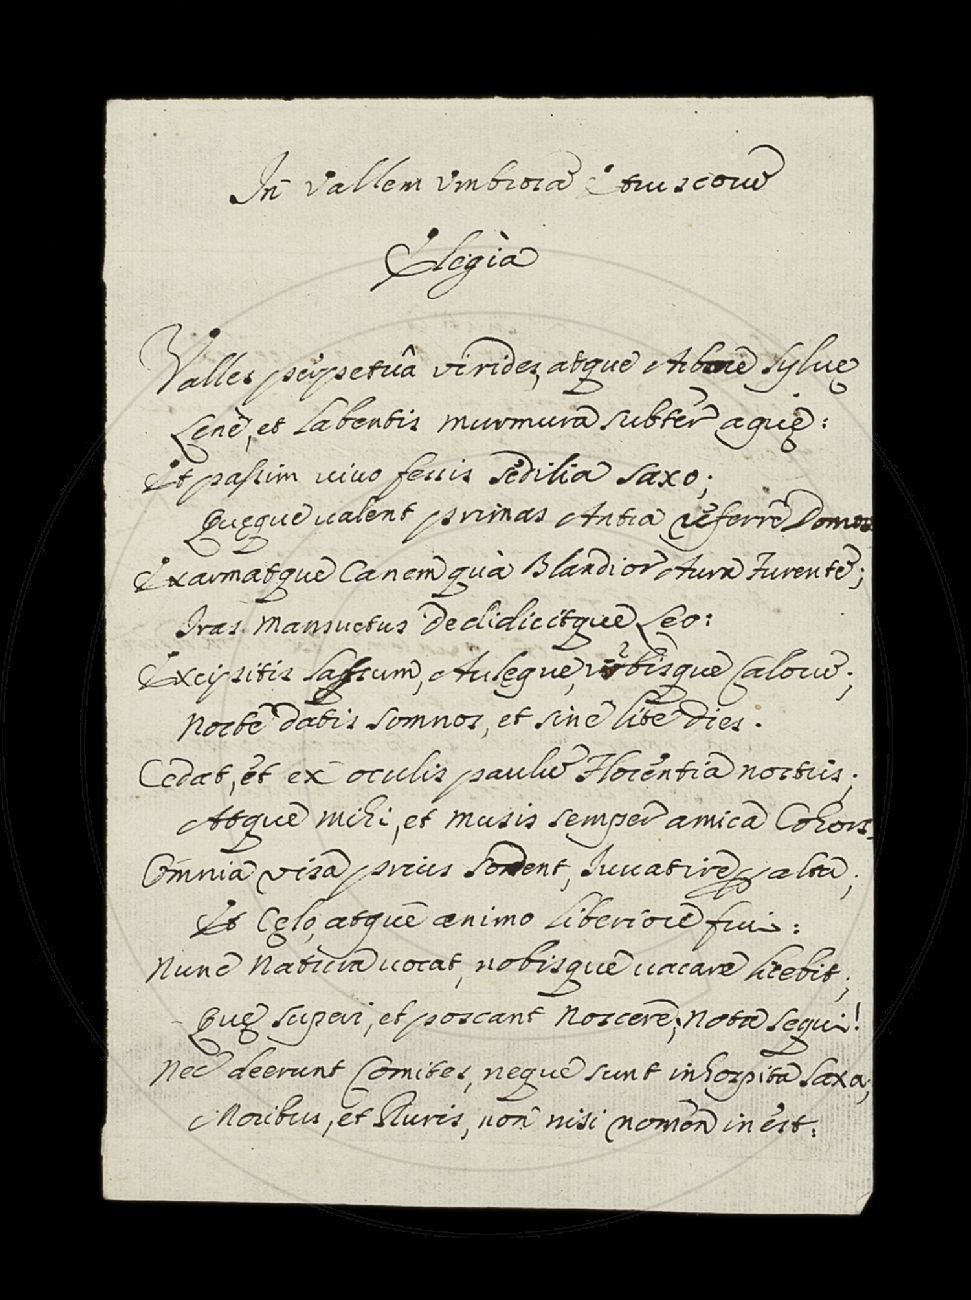 In vallem vmbrosã Etruscorũ
Elegia
Valles perpetuâ virides, atque Abiete sylvę
Lene, et labentis murmura subter aquę:
Et passim vivo fessis sedilia saxo;
Quęque valent primas Antra referre Domos
Exarmatque Canem quà Blandior Aura furente;
Iras Mansuetus Dedidicitque Leo:
Excipitis lassum, Aulęque, vrbisque Calore;
Nocte datis somnos, et sine lite Dies.
Cedat, et ex oculis paulũ Florentia noctris;
Atque mihi, et Musis semper amica Cohors,
Omnia visa prius sordent, Iuvat ire p alta;
Et Cęlo, atque animo liberiore frui:
Nunc Natura vocat, nobisque vacare licebit;
Quę superi, et poscant Noscere, Nota sequi!
Nec deerunt Comites, neque sunt inhospita saxa,
Moribus, et Ruris, non nisi nomen inest.